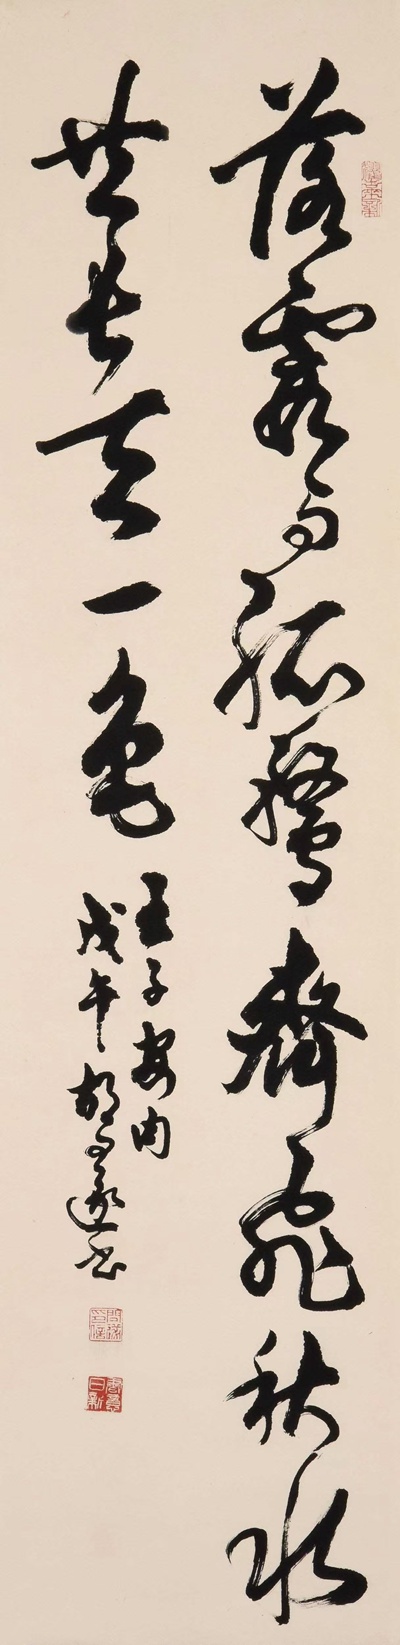 落霞与孤鶩齊飛秋水
共長天一色
王子安句
戊午胡問遂書